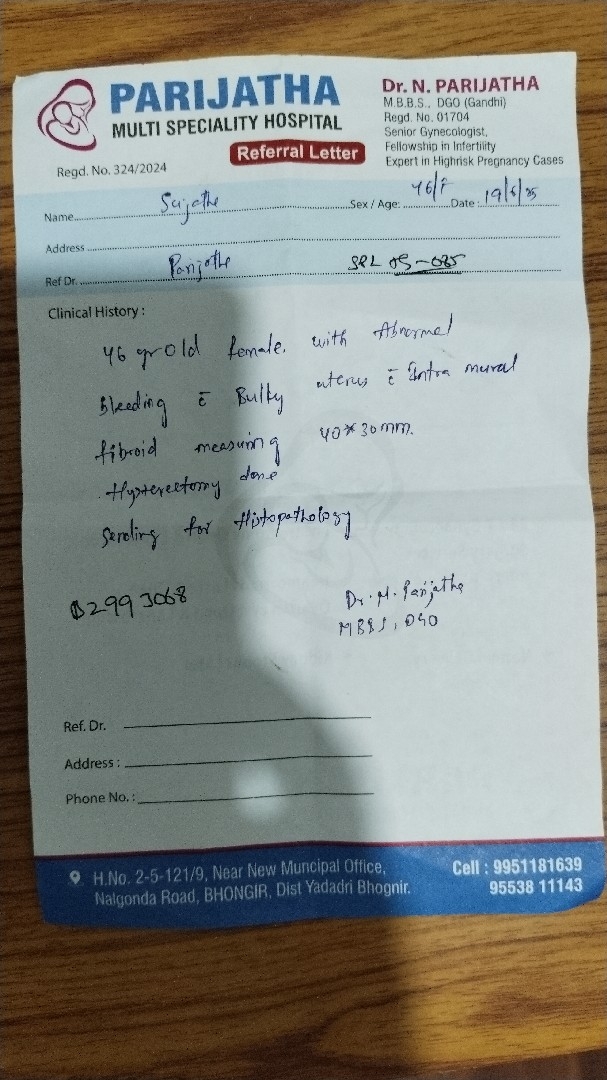 PARIJATHA
MULTI SPECIALITY HOSPITAL
Regd. No. 324/2024
Referral Letter
Dr. N. PARIJATHA
M.B.B.S., DGO (Gandhi)
Regd. No. 01704
Senior Gynecologist,
Fellowship in Infertility
Expert in Highrisk Pregnancy Cases
Name Sujatha Sex / Age: 46/F Date : 19/6/25
Address
Ref Dr. Parijatha SRL 05-085
Clinical History :
46 yr old female. with Abnormal
Bleeding c̄ Bulky uterus c̄ Intra mural
fibroid measuring 40*30mm.
Hysterectomy done
Sending for Histopathology
02993068
Dr. N. Parijatha
MBBS, DGO
Ref. Dr.
Address :
Phone No. :
H.No. 2-5-121/9, Near New Muncipal Office,
Nalgonda Road, BHONGIR, Dist Yadadri Bhognir.
Cell : 9951181639
95538 11143